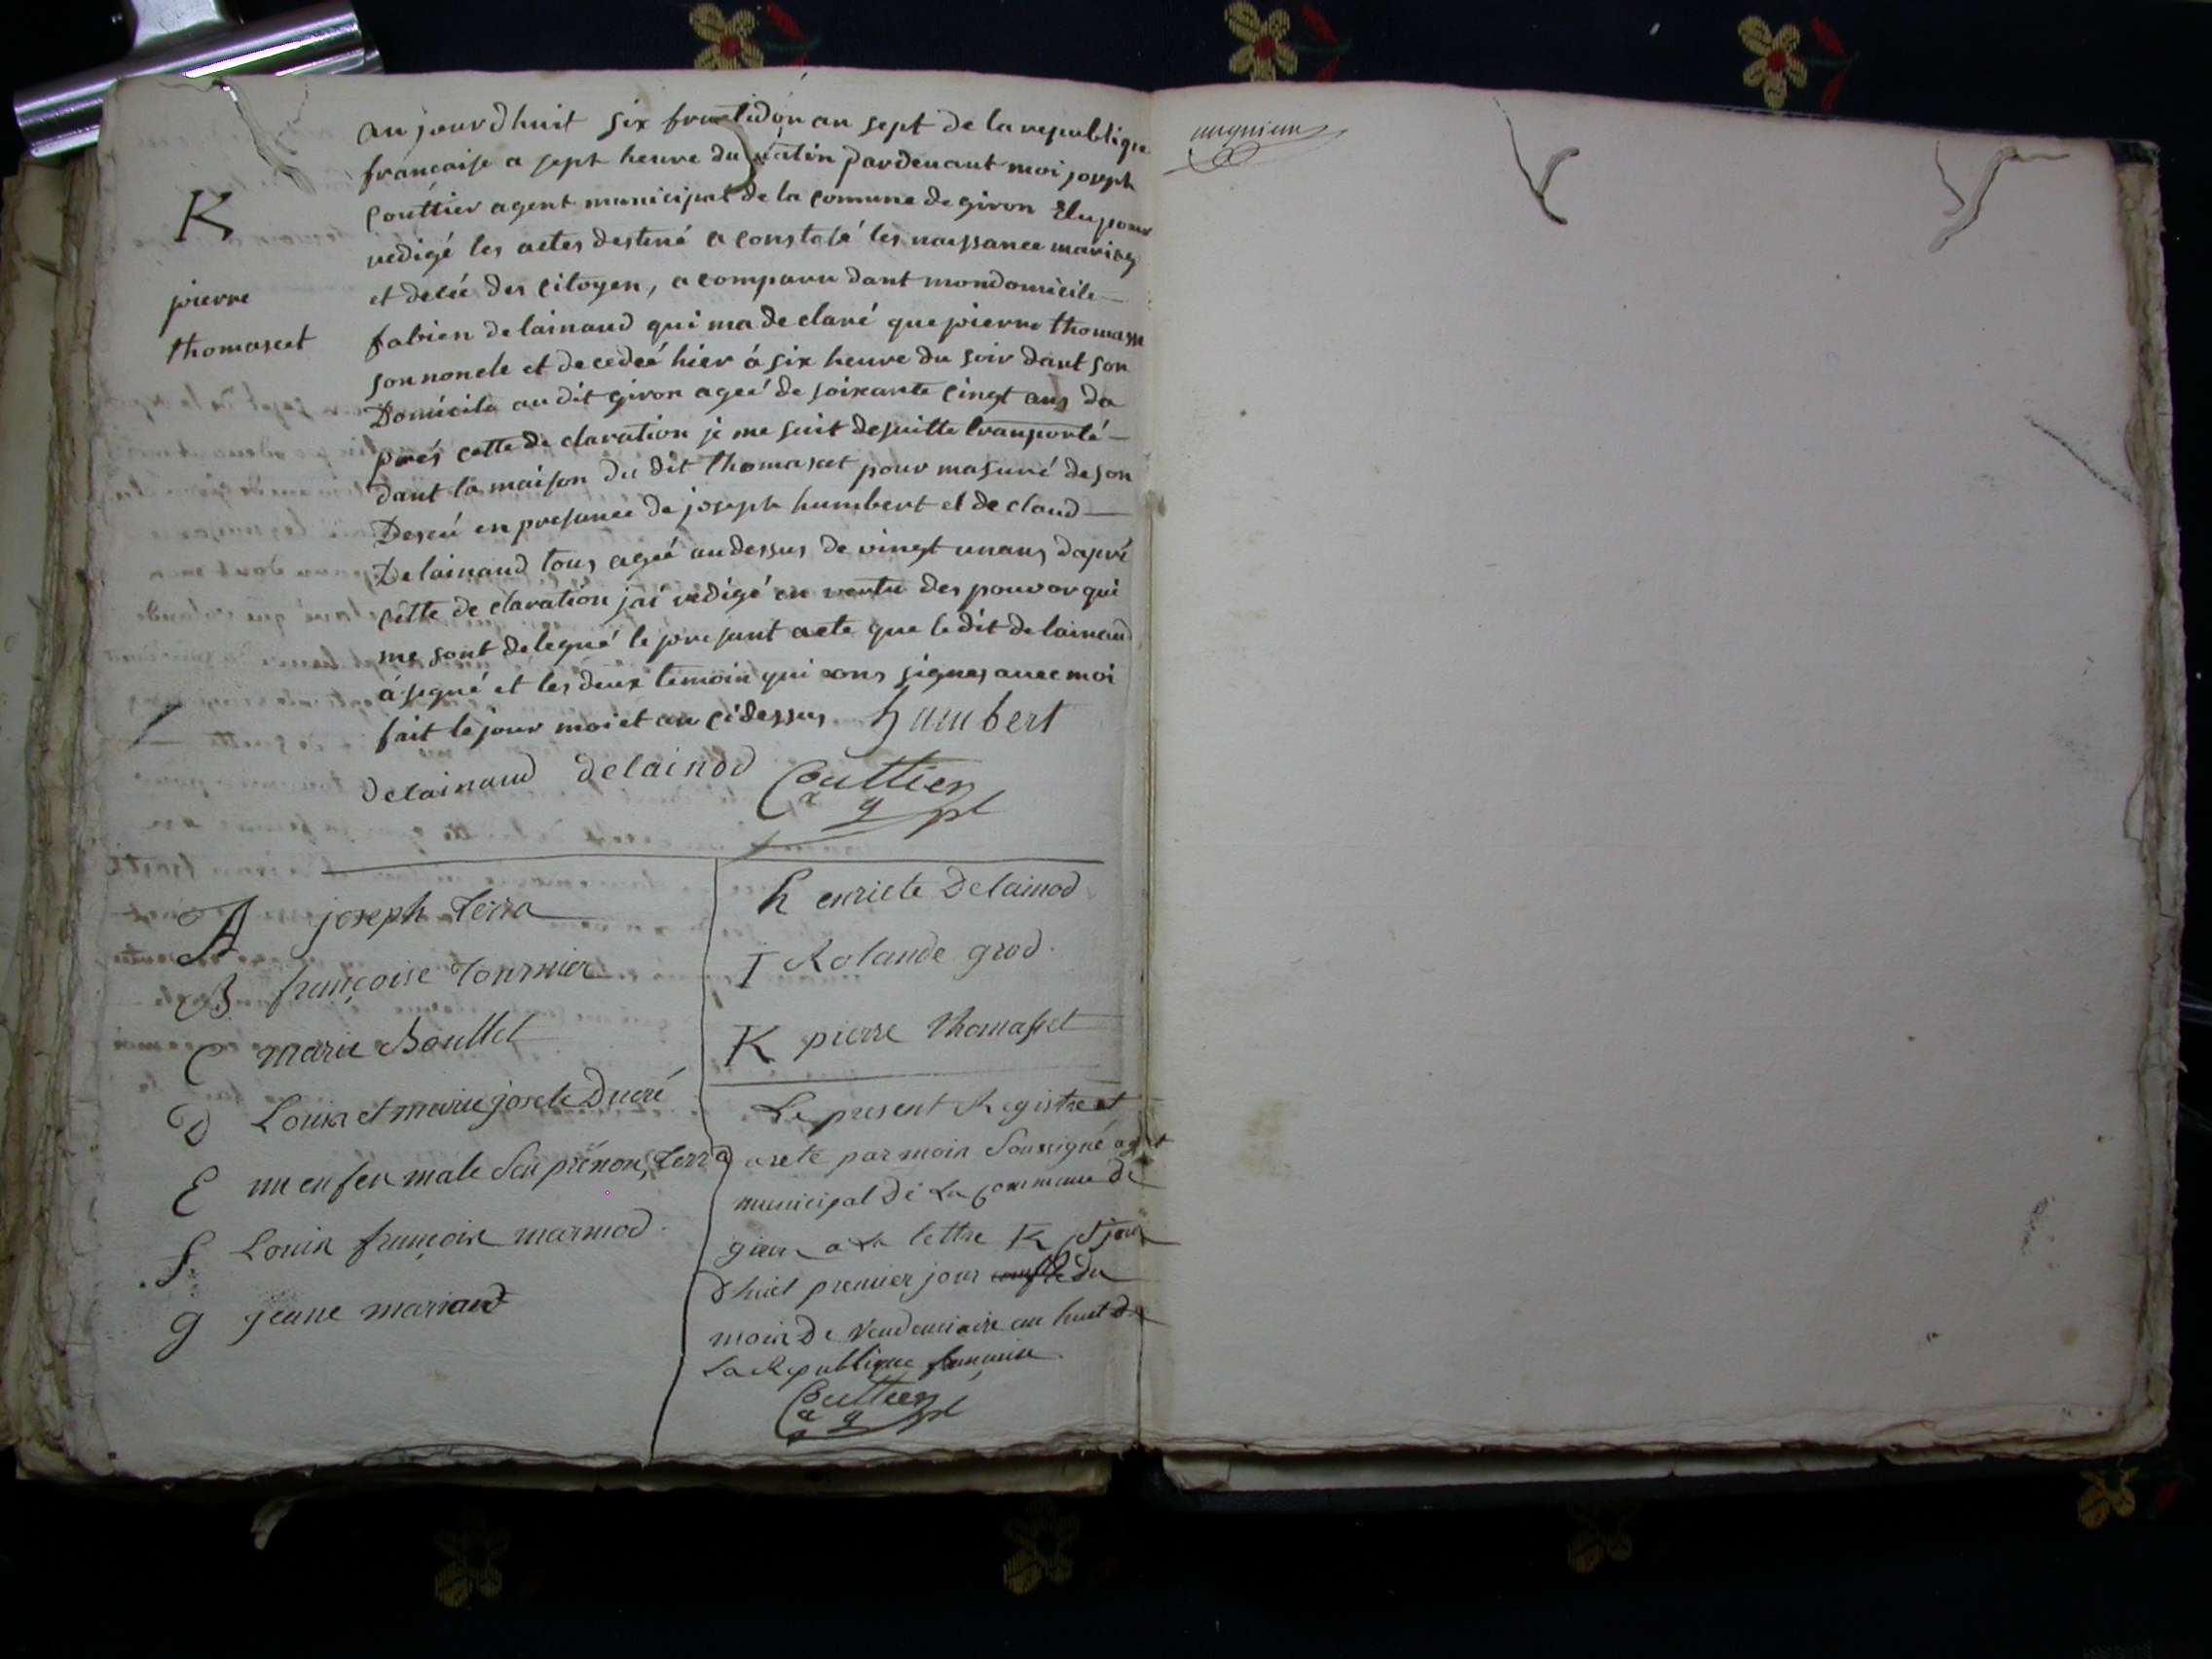 K
pierre
thomaset
au jourdhuit six fructidor an sept de la republique
francaise a sept heure du matin pardevant moi joseph
Couttier agent municipal de la comune de giron Elu pour
redigé les actes destiné a constaté les naissance mariag
et decée des citoyen, a comparu dant mondomicile
fabien delainaud qui ma declaré que pierre thomasse
son noncle et decedeé hier á six heure du soir dant son
Domicile au dit giron ageé de soixante cinqt ans da
prés cette declaration je me suit desuitte tranporté
dant la maison du dit thomaset pour masuré de son
Deseú en presance de joseph humbert et de claud
Delainaud tous ageé au dessus de vingt unans dapré
cette declaration jai redigé en vertu des pouvor qui
me sont delegué le presant acte que le dit delainaud
á signé et les deux temoin qui ons signes avec moi
fait le jour moi et an cidessus humbert
delainaud delainod Couttier
a g pl
A joseph Terra
B françoise Tournier
C marie Boullet
D Louis et marie josete Ducré
E un enfen male sen prénon, Terra
f Louis françois marmod
g jeane mariand
h enriete Delainod
I Rolande grod
K pierre Thomasset
Le present Registre et
areté par moi Soussigné agt
municipal de La commune de
giron a La lettre K jour
Dhuit premier jour du
mois De Vendemiaire an huit De
La Republique francaise
Couttier
a g pl